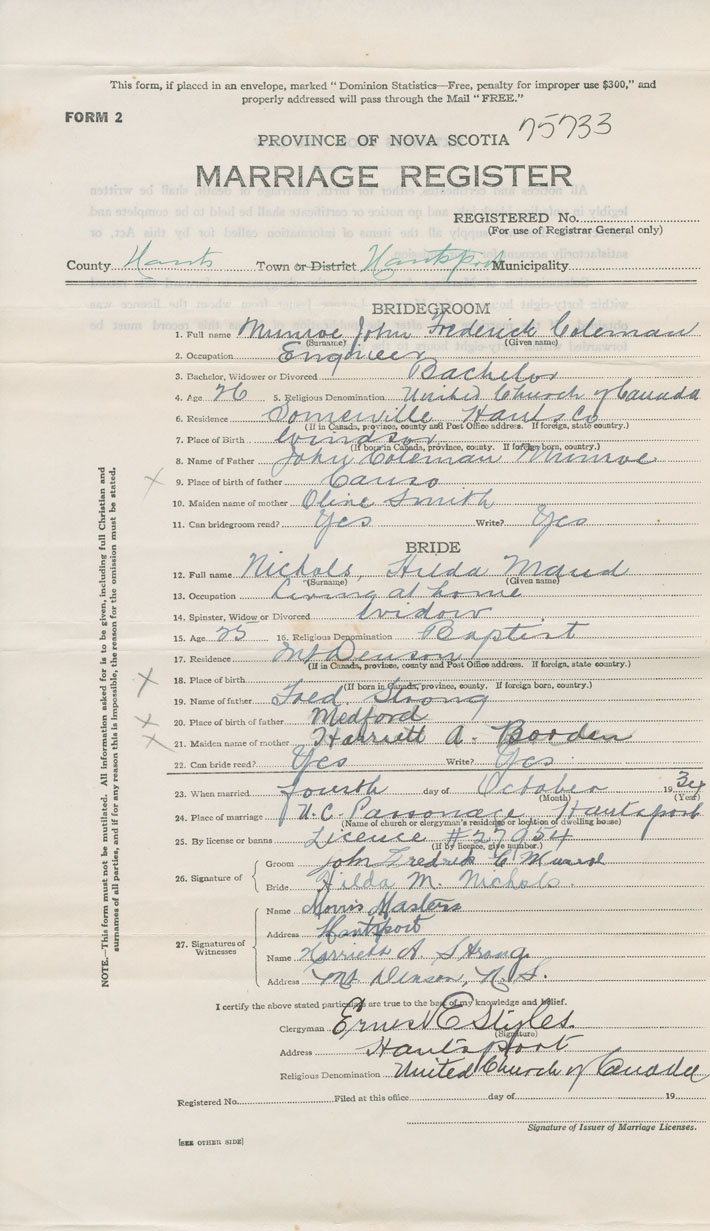 This form, if placed in an envelope, marked "Dominion Statistics—Free, penalty for improper use $300," and
properly addressed will pass through the Mail "FREE."
FORM 2
75733
PROVINCE OF NOVA SCOTIA
MARRIAGE REGISTER
REGISTERED No.
(For use of Registrar General only)
County Hants Town or District Hantsport Municipality
BRIDEGROOM
1. Full name Munroe John Frederick Coleman
(Surname) (Given name)
2. Occupation Engineer
3. Bachelor, Widower or Divorced Bachelor
4. Age 26 5. Religious Denomination United Church of Canada
6. Residence Somerville Hants Co
(If in Canada, province, county and Post Office address. If foreign, state country.)
7. Place of Birth Windsor
(If born in Canada, province, county. If foreign born, country.)
8. Name of Father John Coleman Munroe
9. Place of birth of father Canso
10. Maiden name of mother Olive Smith
11. Can bridegroom read? Yes Write? Yes
BRIDE
12. Full name Nichols, Hilda Maud
(Surname) (Given name)
13. Occupation Living at home
14. Spinster, Widow or Divorced Widow
15. Age 25 16. Religious Denomination Baptist
17. Residence Mt Denson
(If in Canada, province, county and Post Office address. If foreign, state country.)
18. Place of birth
(If born in Canada, province, county. If foreign born, country.)
19. Name of father Fred. Strong
20. Place of birth of father Medford
21. Maiden name of mother Harriett A. Booden
22. Can bride read? Yes Write? Yes
23. When married fourth day of October 1934
(Month) (Year)
24. Place of marriage U.C. Parsonage Hantsport
(Name of church or clergyman's residence or location of dwelling house)
25. By license or banns Licence #27954
(If by licence, give number.)
26. Signature of
Groom John Fredrick C Munroe
Bride Hilda M. Nichols.
27. Signatures of Witnesses
Name Morris Masters
Address Hantsport
Name Harrieta A Strong
Address Mt Denson, N.S.
I certify the above stated particulars are true to the best of my knowledge and belief.
Clergyman Ernest E Styles.
(Signature)
Address Hantsport
Religious Denomination United Church of Canada
Registered No. Filed at this office day of 19
Signature of Issuer of Marriage Licenses.
[SEE OTHER SIDE]
NOTE.—This form must not be mutilated. All information asked for is to be given, including full Christian and
surnames of all parties, and if for any reason this is impossible, the reason for the omission must be stated.